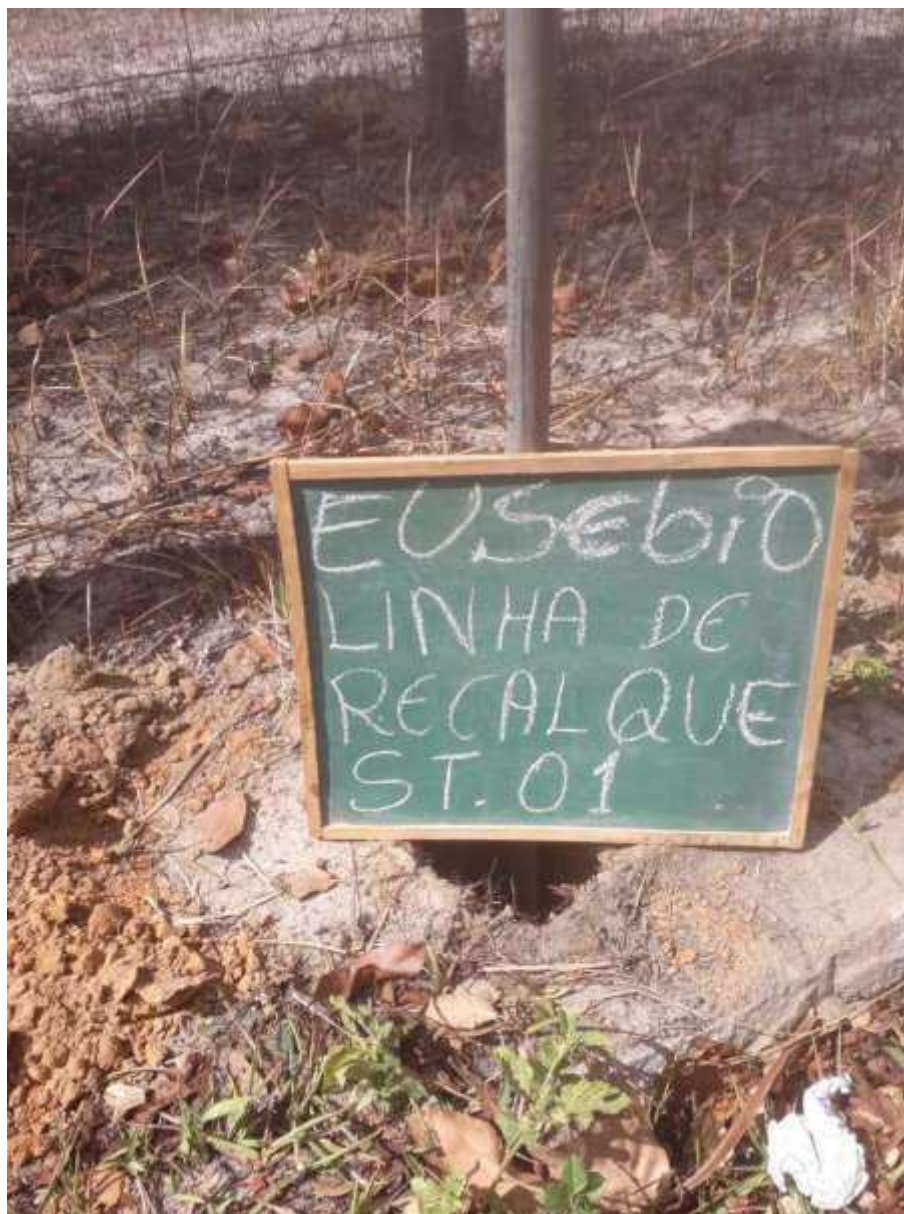 EUSEbiO
LINHA DE
RECALQUE
ST. 01